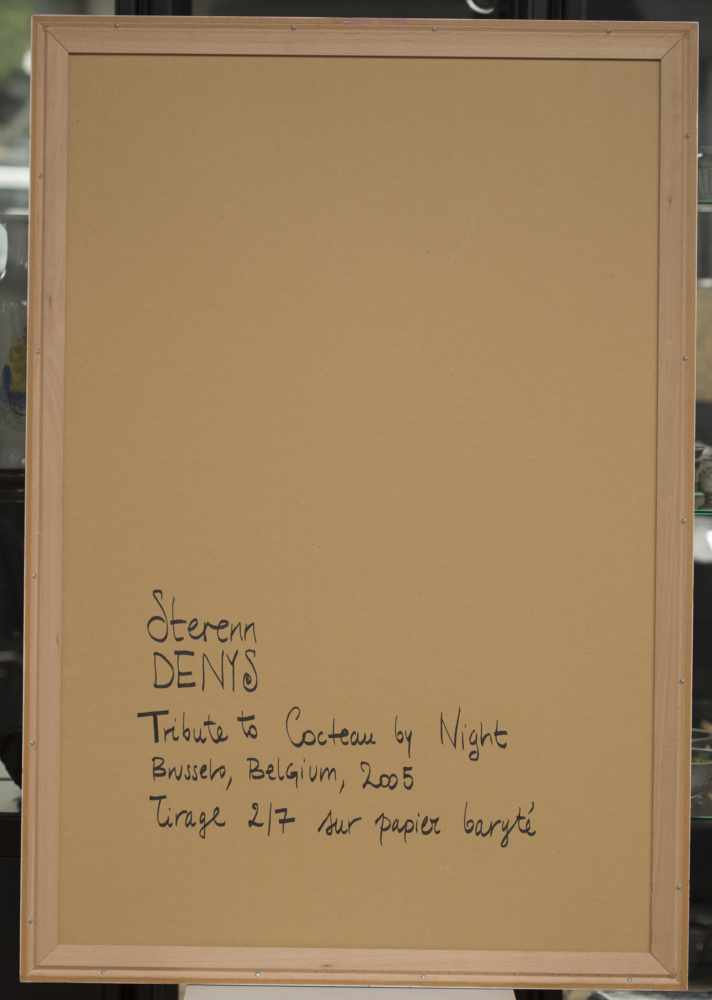 Sterenn
DENYS
Tribute to Cocteau by Night
Brussels, Belgium, 2005
Tirage 2/7 sur papier baryté